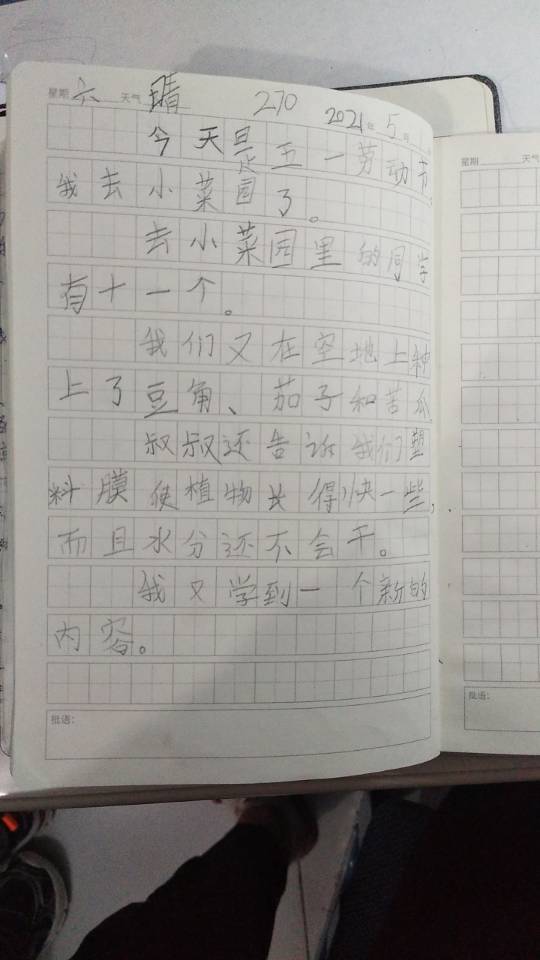 星期六 天气晴 270 2021年5月
今天是五一劳动节,
我去小菜园了。
去小菜园里的同学
有十一个。
我们又在空地上种
上了豆角、茄子和苦瓜
叔叔还告诉我们塑
料膜使植物长得快一些,
而且水分还不会干。
我又学到一个新的
内容。
批语:
星期 天气
批语: